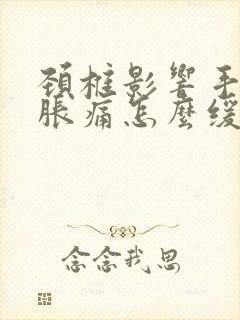 頚椎影響手
脹痛怎麼緩
念念我思